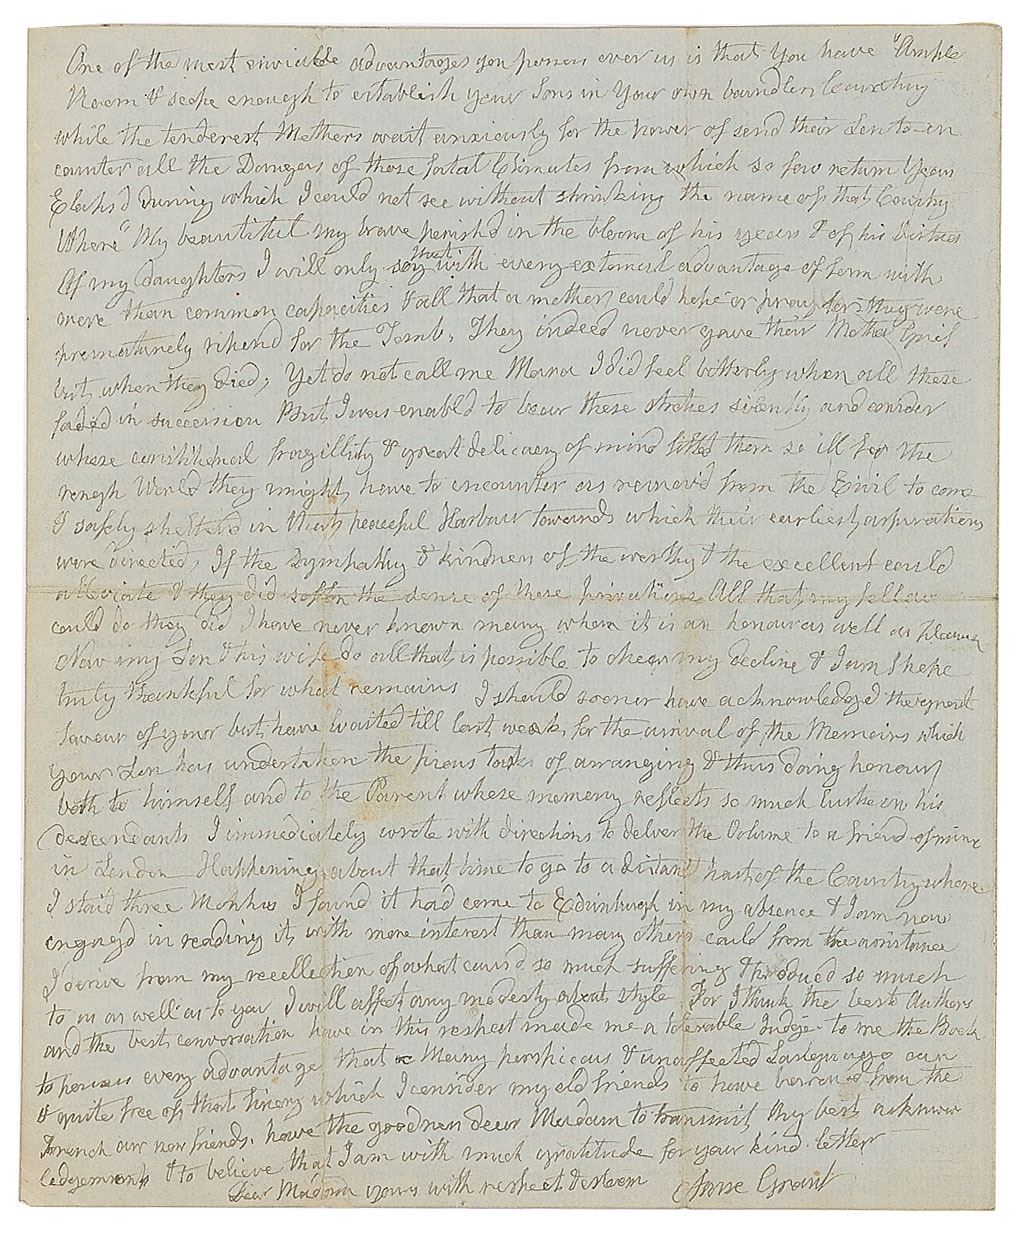 One of the most enviable advantages you possess over us is that You have "Ample
Room & scope enough to establish your Sons in Your own boundless Country
while the tenderest Mothers wait anxiously for the power of send their Son to en
counter all the Dangers of those fatal Climates from which so few return Years
Elaps'd During which I could not see without shrinking the name of that Country
Where "My beautiful my brave perish'd in the bloom of his years & of his Virtues
Of my daughters I will only say that with every external advantage of form with
more than common capacities & all that a mother could hope or pray for they were
prematurely ripend for the Tomb. They indeed never gave their Mother Grief
but when they died, Yet do not call me Mara I did feel bitterly when all these
faded in succession But I was enabld to bear these strokes silently and consider
whose constitutional fragility & great delicacy of mind fitted them so ill for the
rough World they might have to encounter as remov'd from the Evil to come
& safely shelterd in that peaceful Harbour towards which their earliest aspirations
were directed, If the Sympathy & kindness of the worthy & the excellent could
alleviate & they did soften the sense of these privations All that my fellow
could do they did I have never known many whom it is an honour as well as pleasure
Now my Son & his wife do all that is possible to chear my decline & I am I hope
truly thankful for what remains I should sooner have acknowledged the great
favour of your but have waited till last week for the arrival of the Memoirs which
your Son has undertaken the pious task of arranging & thus doing honour
both to himself and to the Parent whose memory reflects so much Lustre on his
descendants I immediately wrote with directions to deliver the Volume to a friend of mine
in London Happening about that time to go to a distant part of the Country where
I staid three Months I found it had come to Edinburgh in my absence & I am now
engag'd in reading it with more interest than many others could from the assistance
I derive from my recollection of what causd so much suffering & producd so much
to us as well as to you I will affect any modesty about style For I think the best Authors
and the best conversation have in this respect made me a tolerable Judge to me the Book
to possess every advantage that a Manly perspicous & unaffected Language can
& quite free of that finery which I consider my old friends to have borrow'd from the
French our now friends. have the goodness dear Madam to transmit my best acknow
ledgements & to believe that I am with much gratitude for your kind letter
Dear Madam yours with respect & esteem Anne Grant